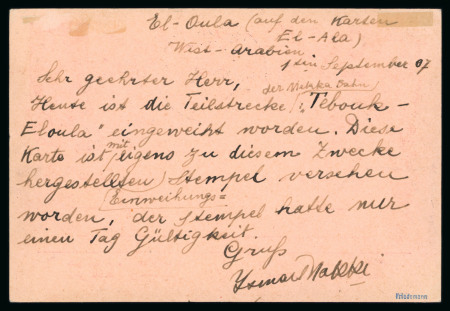 El-Oula (auf den Karten
El-Ala)
West-arabien
1ten September 07
Sehr geehrter Herr,
der Mekka Bahn)
Heute ist die Teilstrecke „Tebouk-
Eloula" eingeweiht worden. Diese
Karte ist mit eigens zu diesem Zwecke
hergestellten) Stempel versehen
(Einweihungs=
worden, der Stempel hatte nur
einen Tag Gültigkeit.
Gruß
Friedemann